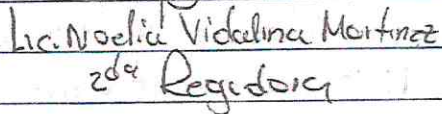 Lic. Noelia Vidalina Martinez
2da Regidora